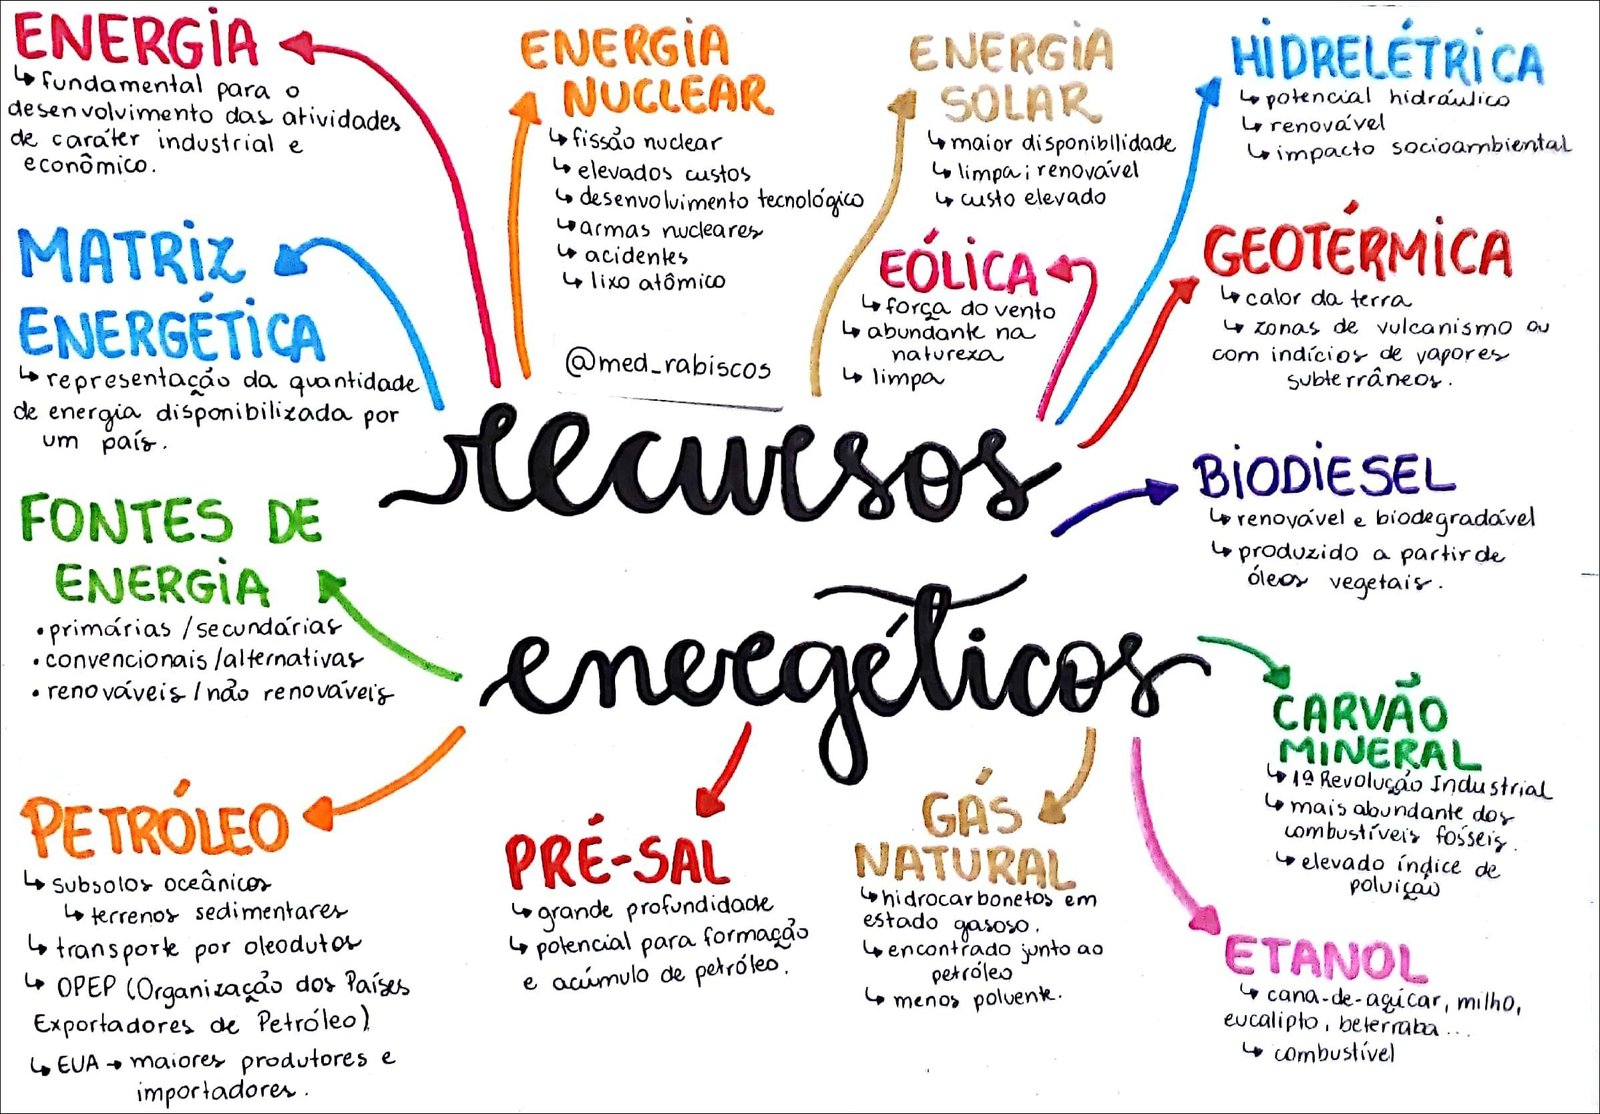 ENERGIA
↳ fundamental para o
desenvolvimento das atividades
de caráter industrial e
econômico.
MATRIZ
ENERGÉTICA
↳ representação da quantidade
de energia disponibilizada por
um país.
FONTES DE
ENERGIA
• primárias / secundárias
• convencionais / alternativas
• renováveis / não renováveis
PETRÓLEO
↳ subsolos oceânicos
↳ terrenos sedimentares
↳ transporte por oleodutos
↳ OPEP (Organização dos Países
Exportadores de Petróleo)
↳ EUA → maiores produtores e
importadores.
ENERGIA
NUCLEAR
↳ fissão nuclear
↳ elevados custos
↳ desenvolvimento tecnológico
↳ armas nucleares
↳ acidentes
↳ lixo atômico
@med_rabiscos
ENERGIA
SOLAR
↳ maior disponibilidade
↳ limpa; renovável
↳ custo elevado
EÓLICA
↳ força do vento
↳ abundante na
natureza
↳ limpa
HIDRELÉTRICA
↳ potencial hidráulico
↳ renovável
↳ impacto socioambiental
GEOTÉRMICA
↳ calor da terra
↳ zonas de vulcanismo ou
com indícios de vapores
subterrâneos.
recursos
energéticos
BIODIESEL
↳ renovável e biodegradável
↳ produzido a partir de
óleos vegetais.
CARVÃO
MINERAL
↳ 1ª Revolução Industrial
↳ mais abundante dos
combustíveis fósseis.
↳ elevado índice de
poluição
PRÉ-SAL
↳ grande profundidade
↳ potencial para formação
e acúmulo de petróleo.
GÁS
NATURAL
↳ hidrocarbonetos em
estado gasoso.
↳ encontrado junto ao
petróleo
↳ menos poluente.
ETANOL
↳ cana-de-açúcar, milho,
eucalipto, beterraba...
↳ combustível